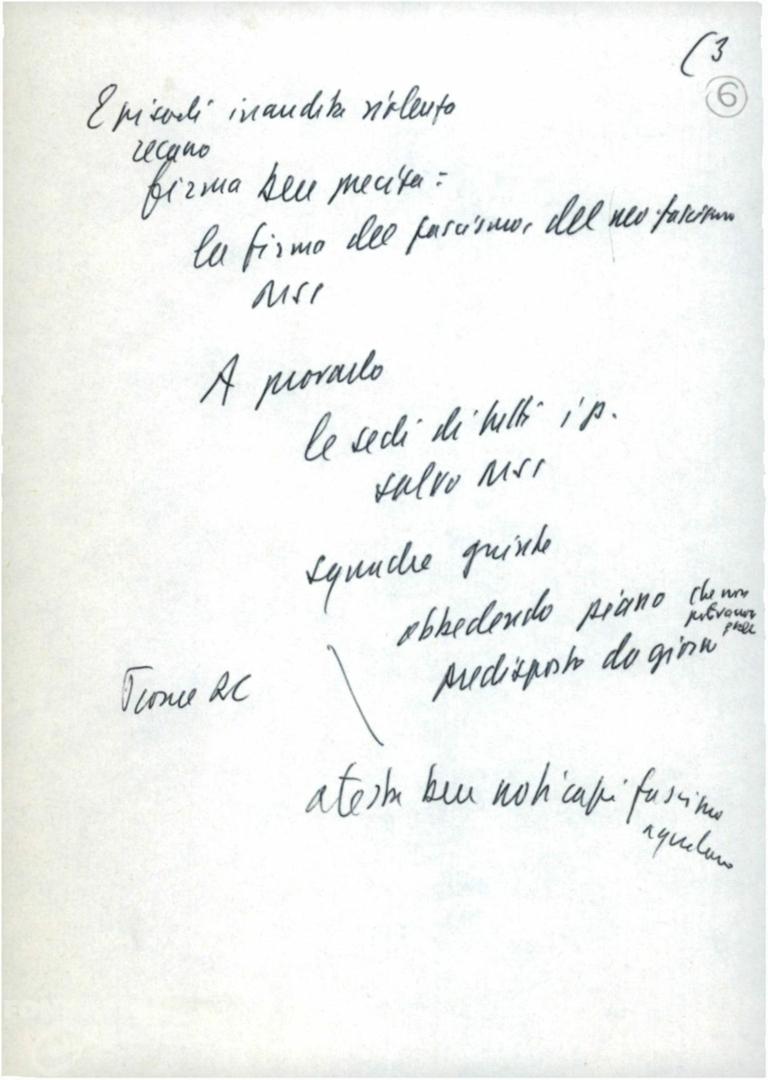 (3
6
Episodi inaudita violenza
recano
firma ben precisa:
la firma del fascismo, del neo-fascismo
MSI
A provarlo
le sedi di tutti i p.
salvo MSI
squadre guidate
obbedendo piano che non
potevano
predisposto da giorni
Teoria RC
a testa ben noti capi fascismo
aquilano